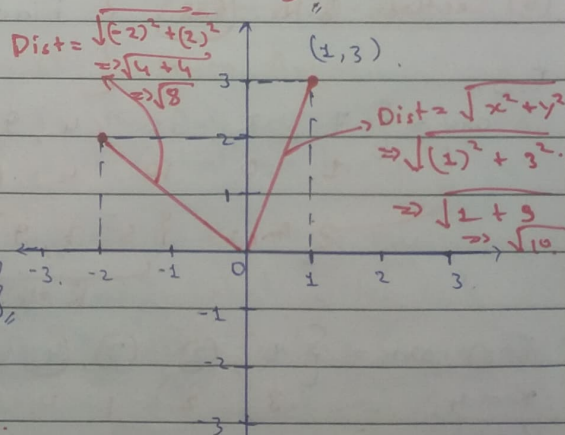 Dist = √(-2)² + (2)²
=> √4 + 4
=> √8
(1, 3).
Dist = √x² + y²
=> √(1)² + 3².
=> √1 + 9
=> √10
3
2
1
-3. -2 -1 0 1 2 3.
-1
-2
-3